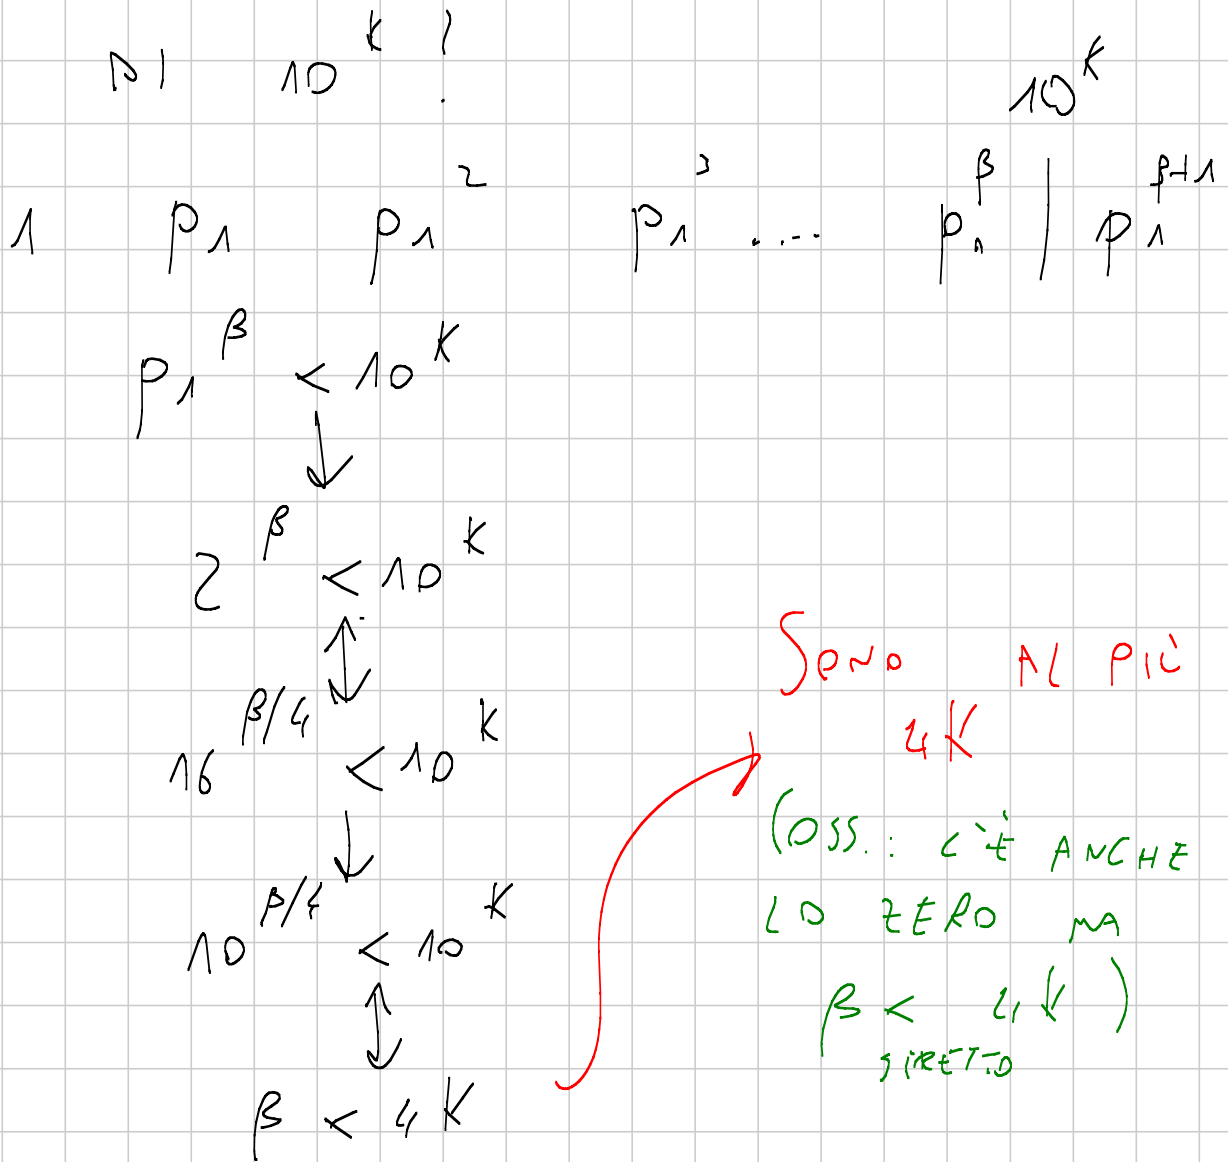 DI 10^K ?
10^K
1 p₁ p₁² p₁³ .... p₁^β | p₁^β+1
p₁^β < 10^K
↓
2^β < 10^K
↕
16^β/4 < 10^K
↓
10^β/4 < 10^K
↕
β < 4K
SONO AL PIÙ
4K
(OSS.: C'È ANCHE
LO ZERO MA
β < 4K)
STRETTO